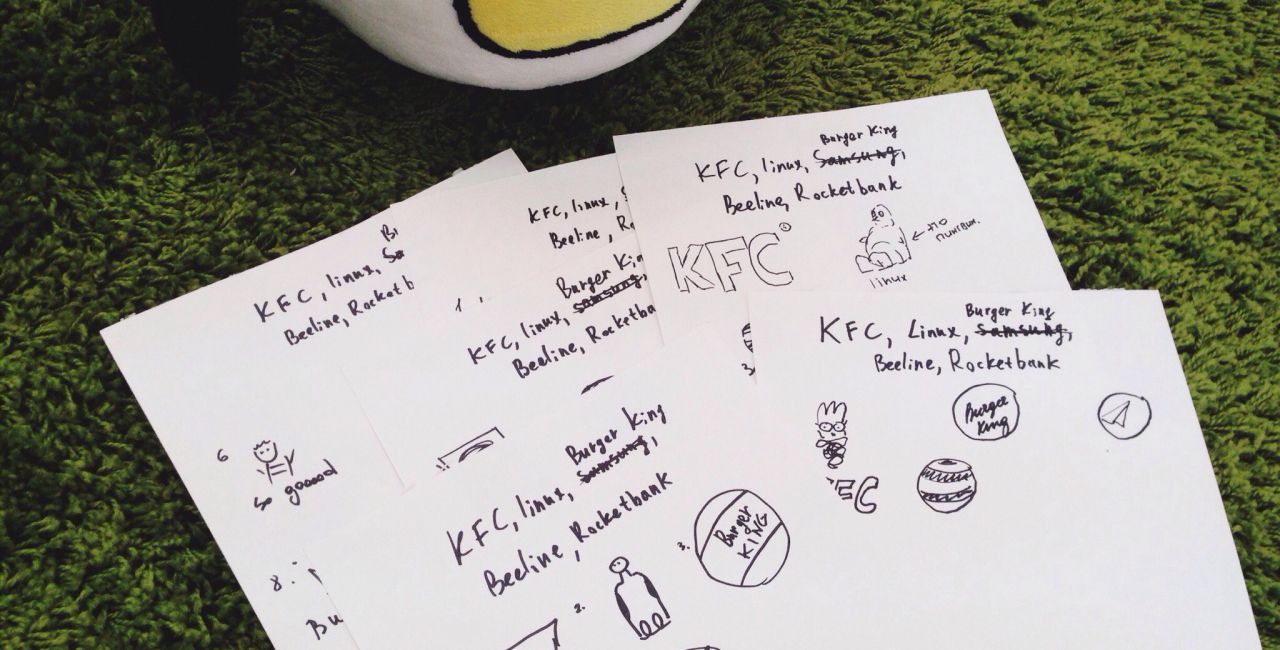 KFC, linux,
Beeline, Rocketb
6
so gooood
8.
Bu
KFC, linux,
Beeline, Ro
1.
Burger Kin
KFC, linux, Samsung,
Beeline, Rocketba
Burger King
KFC, linux, Samsung,
Beeline, Rocketbank
KFC
←это
пингвин.
linux
3.
Burger King
KFC, linux, Samsung,
Beeline, Rocketbank
2.
3.
Burger
KING
Burger King
KFC, Linux, Samsung,
Beeline, Rocketbank
Burger
King
FC